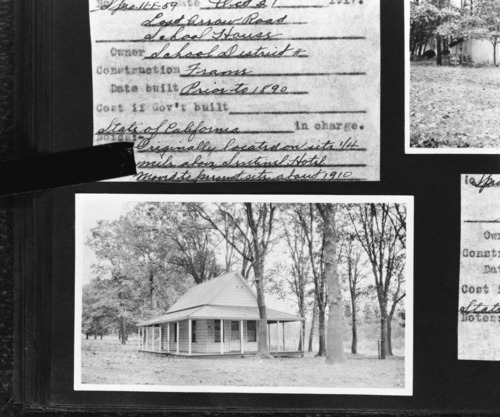 Spec. 11-E-59
Lost Arrow Road
School House
Owner School District #
Construction Frame
Date built Prior to 1890
Cost if Gov't built
State of California in charge.
Originally located on site 1/4
mile above Sentinel Hotel
Moved to present site about 1910
Cost i
State
Notes: